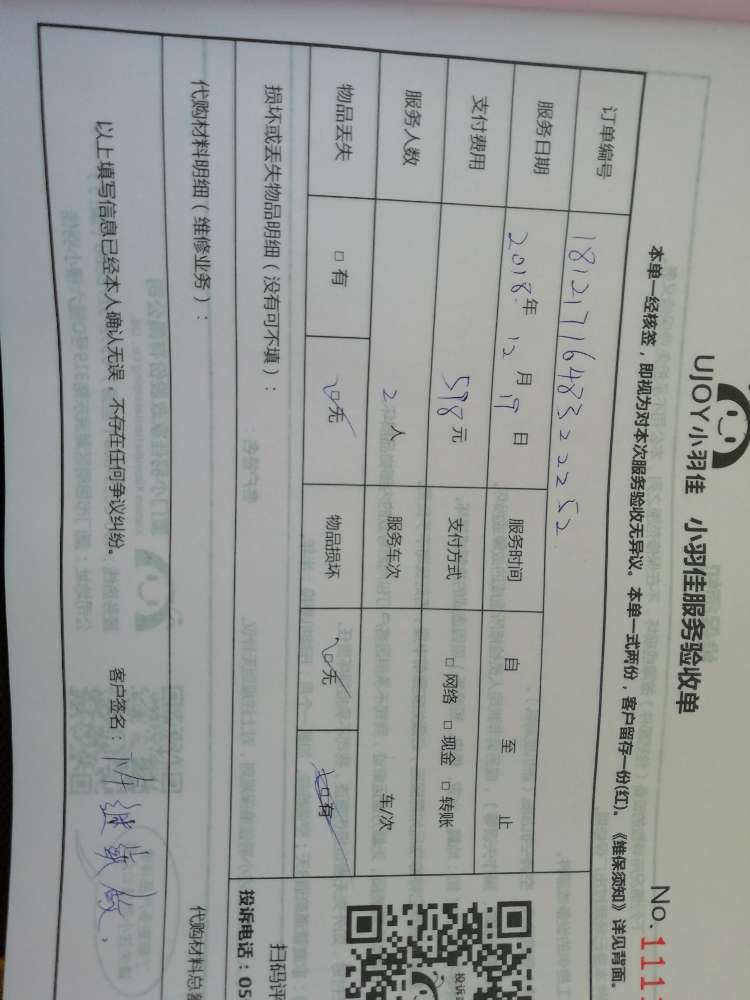 UJOY小羽佳 小羽佳服务验收单
No.111
本单一经核签，即视为对本次服务验收无异议。本单一式两份，客户留存一份(红)。《维保须知》详见背面。
订单编号 181217164832252
服务日期 2018年 12月 19日 服务时间 自 至 止
支付费用 598元 支付方式 □ 网络 □ 现金 □ 转账
服务人数 2人 服务车次 车/次
物品丢失 □ 有 □ 无 物品损坏 □ 无 □ 有
损坏或丢失物品明细（没有可不填）：
代购材料明细（维修业务）：
以上填写信息已经本人确认无误，不存在任何争议纠纷。 客户签名：
投诉
扫码评
投诉电话：05
代购材料总